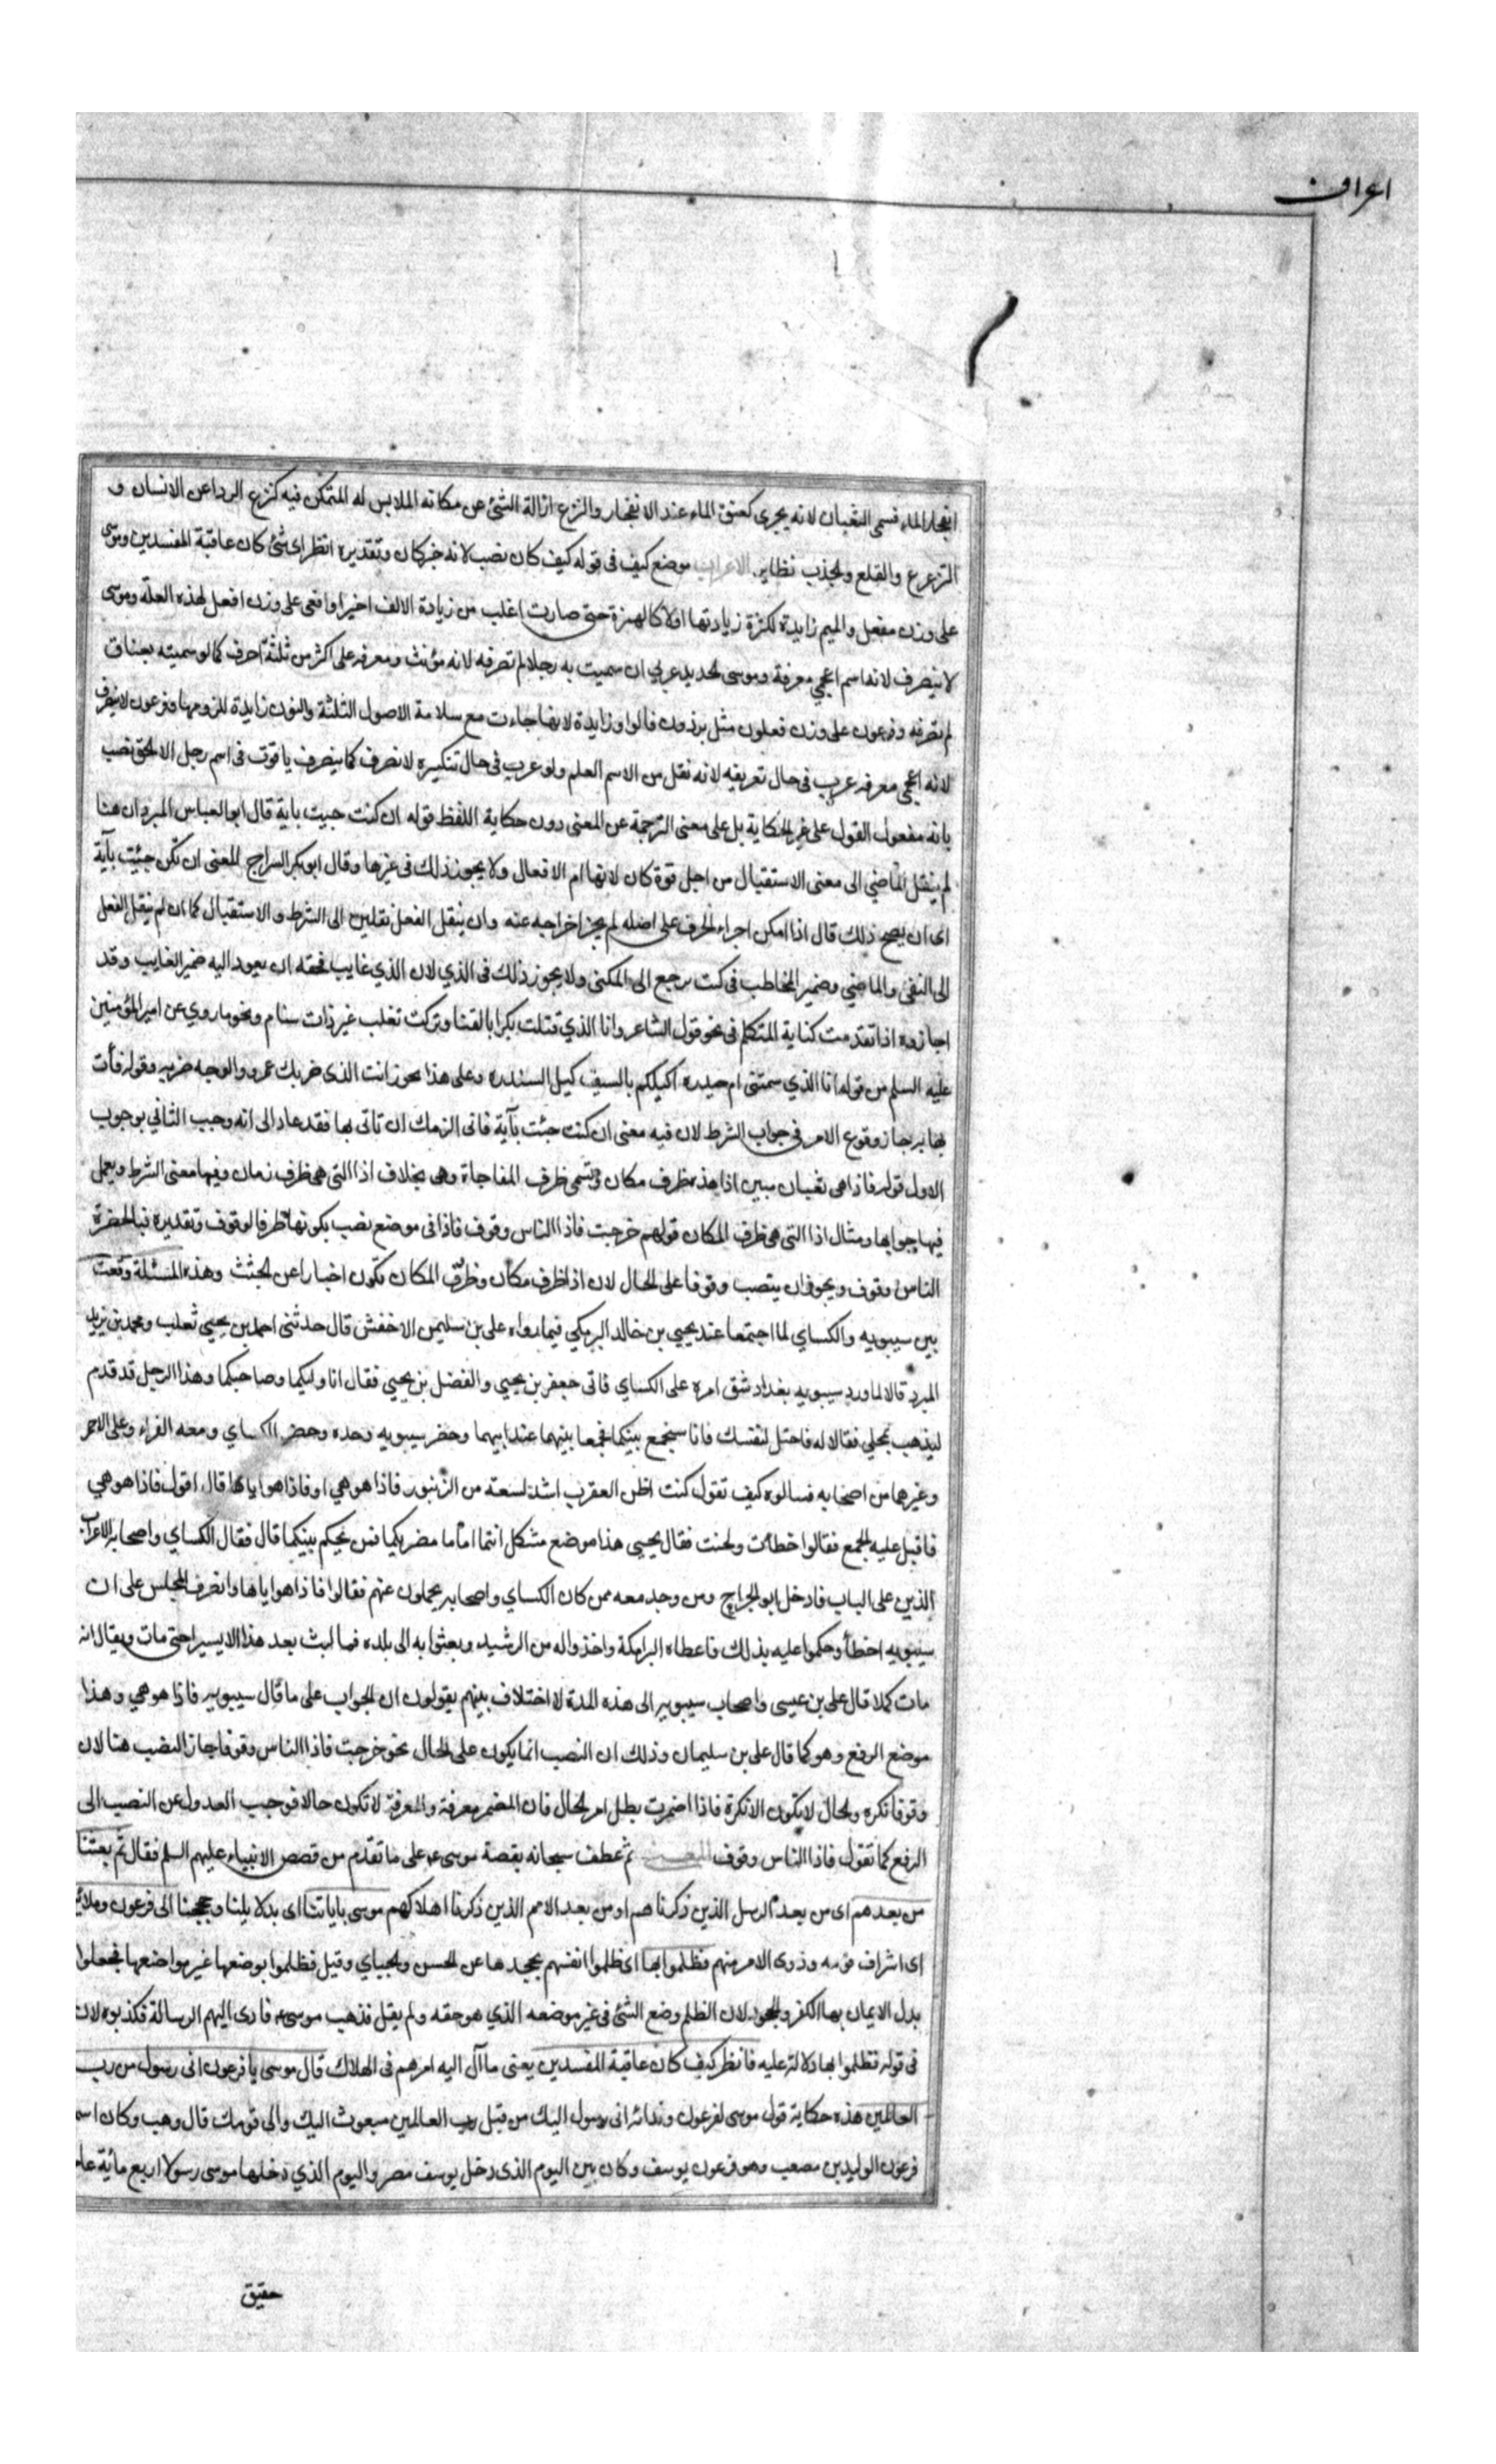 اعراف
انفجار الماء فسمي الثعبان لانه يجري كعنق الماء عند الانفجار والنزع ازالة الشئ عن مكانه الملابس له المتمكن فيه كنزع الرداء عن الانسان و
النزع والقلع والجذب نظاير الاعراب موضع كيف في قوله كيف كان نصب لانه خبر كان وتقديره انظر اى شئ كان عاقبة المفسدين وموسى
على وزن مفعل والميم زايدة لكثرة زيادتها اولا كالهمزة حتى صارت اغلب من زيادة الالف اخيرا وافعى على وزن افعل لهذه العلة وموسى
لا ينصرف لانه اسم اعجمي معرفة وموسى الحديد عربي ان سميت به رجلا لم تصرفه لانه مؤنث ومعرفه على اكثر من ثلثة احرف كما لو سميته بعناق
لم تصرفه وفرعون على وزن فعلون مثل برذون فالواو زايدة لانها جاءت مع سلامة الاصول الثلثة والنون زايدة للزومها وفرعون لا ينصرف
لانه اعجمي معرفه عرب في حال تعريفه لانه نقل من الاسم العلم ولو عرب في حال تنكيره لانصرف كما ينصرف ياقوت في اسم رجل الا الحق نصب
بانه مفعول القول على غير الحكاية بل على معنى الترجمة عن المعنى دون حكاية اللفظ قوله ان كنت جيت باية قال ابو العباس المبرد ان هنا
لم ينقل الماضي الى معنى الاستقبال من اجل قوة كان لانها ام الافعال ولا يجوز ذلك في غيرها وقال ابو بكر السراج المعنى ان تكن جئت بآية
اى ان يصح ذلك قال اذا امكن اجراء الحرف على اصله لم يجز اخراجه عنه وان ينقل الفعل نقلين الى الشرط والاستقبال كما ان لم ينقل الفعل
الى النفى والماضي وضمير المخاطب في كنت يرجع الى المكنى ولا يجوز ذلك في الذي لان الذي غايب فحقه ان يعود اليه ضمير الغايب وقد
اجازوه اذا تقدمت كناية المتكلم في نحو قول الشاعر وانا الذي قتلت بكرا بالقنا وتركت تغلب غير ذات سنام ونحو ما روي عن امير المؤمنين
عليه السلم من قوله انا الذي سمتنى ام حيدره اكيلكم بالسيف كيل السندره وعلى هذا يجوز انت الذى ضربك عمرو والوجه ضربه وقوله فأت
بها بر جاز وقوع الامر في جواب الشرط لان فيه معنى ان كنت جئت بآية فاني الزمك ان تاتى بها فقد عاد الى انه وجب الثاني بوجوب
الاول قوله فاذا هى ثعبان مبين اذا هذه ظرف مكان وتسمى ظرف المفاجاة وهى بخلاف اذا التى هى ظرف زمان وفيها معنى الشرط ويعمل
فيها جوابها ومثال اذا التى هى ظرف المكان قولهم خرجت فاذا الناس وقوف فاذا فى موضع نصب بكونها ظرفا لوقوف وتقديره فبالحضرة
الناس وقوف ويجوز ان ينتصب وقوفا على الحال لان اذا ظرف مكان وظروف المكان تكون اخبارا عن الجثث وهذه المسئلة وقعت
بين سيبويه والكساي لما اجتمعا عند يحيي بن خالد البرمكي فيما رواه على بن سليمن الاخفش قال حدثنى احمد بن يحيي ثعلب ومحمد بن يزيد
المبرد قالا لما ورد سيبويه بغداد شق امره على الكساي فاتى جعفر بن يحيي والفضل بن يحيي فقال انا وليكما وصاحبكما وهذا الرجل قد قدم
ليذهب بمحلي فقالا له فاحتل لنفسك فانا سنجمع بينكما فجمعا بينهما عند ابيهما وحضر سيبويه وحده وحضر الكساي ومعه الفراء وعلى الاحمر
وغيرهما من اصحابه فسالوه كيف تقول كنت اظن العقرب اشد لسعته من الزنبور فاذا هو هي او فاذا هو اياها قال اقول فاذا هو هي
فاقبل عليه الجمع فقالوا خطأت ولحنت فقال يحيى هذا موضع مشكل انتما اماما مصريكما فمن يحكم بينكما قال فقال الكساي واصحابه الاعراب
الذين على الباب فادخل ابو الجراح ومن وجد معه ممن كان الكساي واصحابه يحملون عنهم فقالوا فاذا هو اياها وانصرف المجلس على ان
سيبويه اخطأ وحكموا عليه بذلك فاعطاه البرامكة واخذوا له من الرشيد وبعثوا به الى بلده فما لبث بعد هذا الا يسيرا حتى مات ويقال انه
مات كمدا قال على بن عيسى واصحاب سيبويه الى هذه المدة لا اختلاف بينهم يقولون ان الجواب على ما قال سيبويه فاذا هو هي وهذا
موضع الرفع وهو كما قال على بن سليمان وذلك ان النصب انما يكون على الحال نحو خرجت فاذا الناس وقوفا جاز النصب هنا لان
وقوفا نكره والحال لا يكون الا نكرة فاذا اضمرت بطل امر الحال فان المضمر معرفة والمعرفة لا تكون حالا فوجب العدول عن النصب الى
الرفع كما تقول فاذا الناس وقوف المعنى ثم عطف سبحانه بقصة موسى ع على ما تقدم من قصص الانبياء عليهم السلم فقال ثم بعثنا
من بعدهم اى من بعد الرسل الذين ذكرناهم او من بعد الامم الذين ذكرنا اهلاكهم موسى باياتنا اى بدلايلنا وحججنا الى فرعون وملائه
اى اشراف قومه وذوى الامر منهم فظلموا بها اى ظلموا انفسهم بجحدها عن الحسن والجباي وقيل فظلموا بوضعها غير مواضعها فجعلوا
بدل الايمان بها الكفر والجحود لان الظلم وضع الشئ في غير موضعه الذي هو حقه ولم يقل فذهب موسى ع فادى اليهم الرسالة فكذبوه لان
في قوله فظلموا بها دلالة عليه فانظر كيف كان عاقبة المفسدين يعنى ما آل اليه امرهم فى الهلاك قال موسى يا فرعون انى رسول من رب
العالمين هذه حكاية قول موسى لفرعون وندائه انى رسول اليك من قبل رب العالمين مبعوث اليك والى قومك قال وهب وكان اسم
فرعون الوليد بن مصعب وهو فرعون يوسف وكان بين اليوم الذى دخل يوسف مصر واليوم الذي دخلها موسى رسولا اربع مائة عام
حقيق